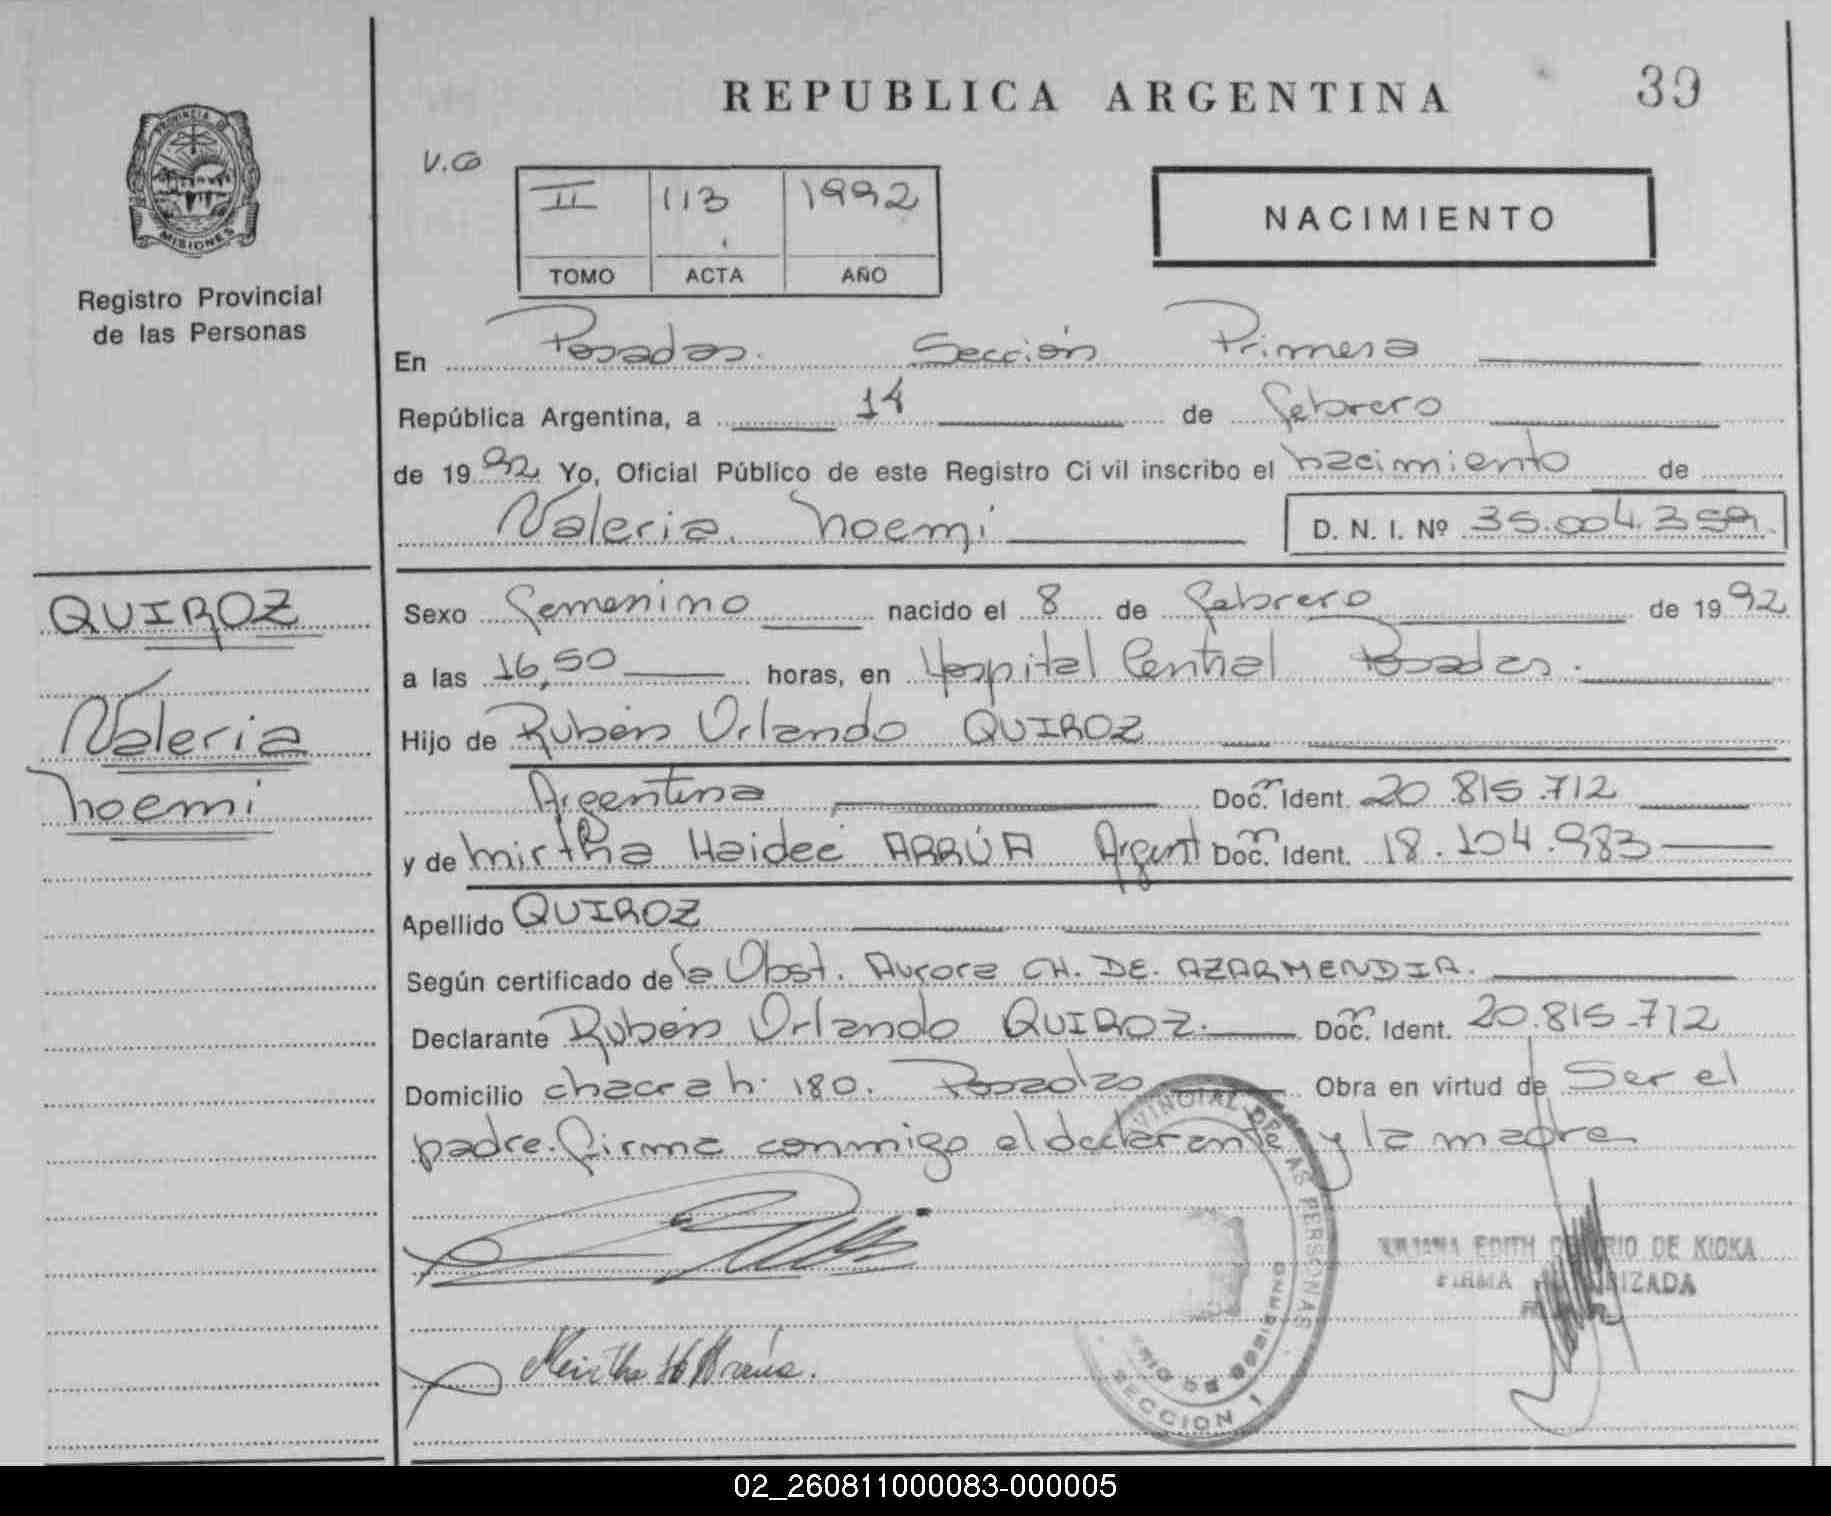 REPUBLICA ARGENTINA
39
PROVINCIA DE
MISIONES
Registro Provincial
de las Personas
V.G
II 113 1992
TOMO ACTA AÑO
NACIMIENTO
En Posadas. Sección Primera
República Argentina, a 14 de febrero
de 1992 Yo, Oficial Público de este Registro Civil inscribo el nacimiento de
Valeria noemi D. N. I. Nº 35.004.359
QUIROZ
Valeria
noemi
Sexo femenino nacido el 8 de febrero de 1992
a las 16,50 horas, en Hospital Central Posadas.
Hijo de Rubén Orlando QUIROZ
Argentina Doc. Ident. 20.815.712
y de mirtha Haideé ARRÚA Argent Doc. Ident. 18.104.983
Apellido QUIROZ
Según certificado de la Obst. Aurora CH. DE. AZARMENDIA.
Declarante Rubén Orlando QUIROZ. Doc. Ident. 20.815.712
Domicilio chacra h. 180. Posadas Obra en virtud de Ser el
padre. firma conmigo el declarante y la madre
EDITH DE KIOKA
FIRMA AUTORIZADA
Mirtha H Arrúa.
SECCION 1
02_260811000083-000005